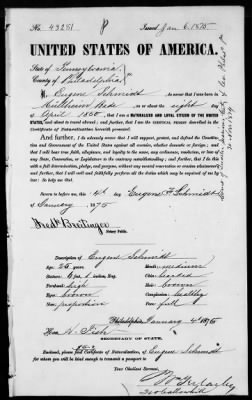 No. 43281 Issued Jan 6, 1875
UNITED STATES OF AMERICA.
State of Pennsylvania
County of Philadelphia
I, Eugene Schmidt
do swear that I was born in
on or about the eight
of April 1850, that I am a NATURALIZED AND LOYAL CITIZEN OF THE UNITED
STATES, and about to travel abroad; and that I am the IDENTICAL PERSON described in the
Certificate of Naturalization herewith presented.
And further, I do solemnly swear that I will support, protect, and defend the Constitution
and Government of the United States against all enemies, whether domestic or foreign; and
that I will bear true faith, allegiance, and loyalty to the same, any ordinance, resolution, or law of
any State, Convention, or Legislature to the contrary notwithstanding; and further, that I do this
with a full determination, pledge, and purpose, without any mental reservation or evasion whatsoever;
and further, that I will well and faithfully perform all the duties which may be required of me
by law: So help me God.
Sworn to before me, this 4th day
of January 1875
Eugene Schmidt
Fredk Breitinger
Notary Public.
Description of Eugene Schmidt
Age:
Mouth: medium
Stature: Inches, Eng.
Chin:
Forehead: high
Hair: brown
Eyes: brown
Complexion: healthy
Nose: proportion
Face: full
Philadelphia January 4th 1875
Hon. H. Fish
SECRETARY OF STATE.
Enclosed, please find Certificate of Naturalization, of Eugene Schmidt
for whom you will be kind enough to transmit a passport to
Your Obedient Servant,